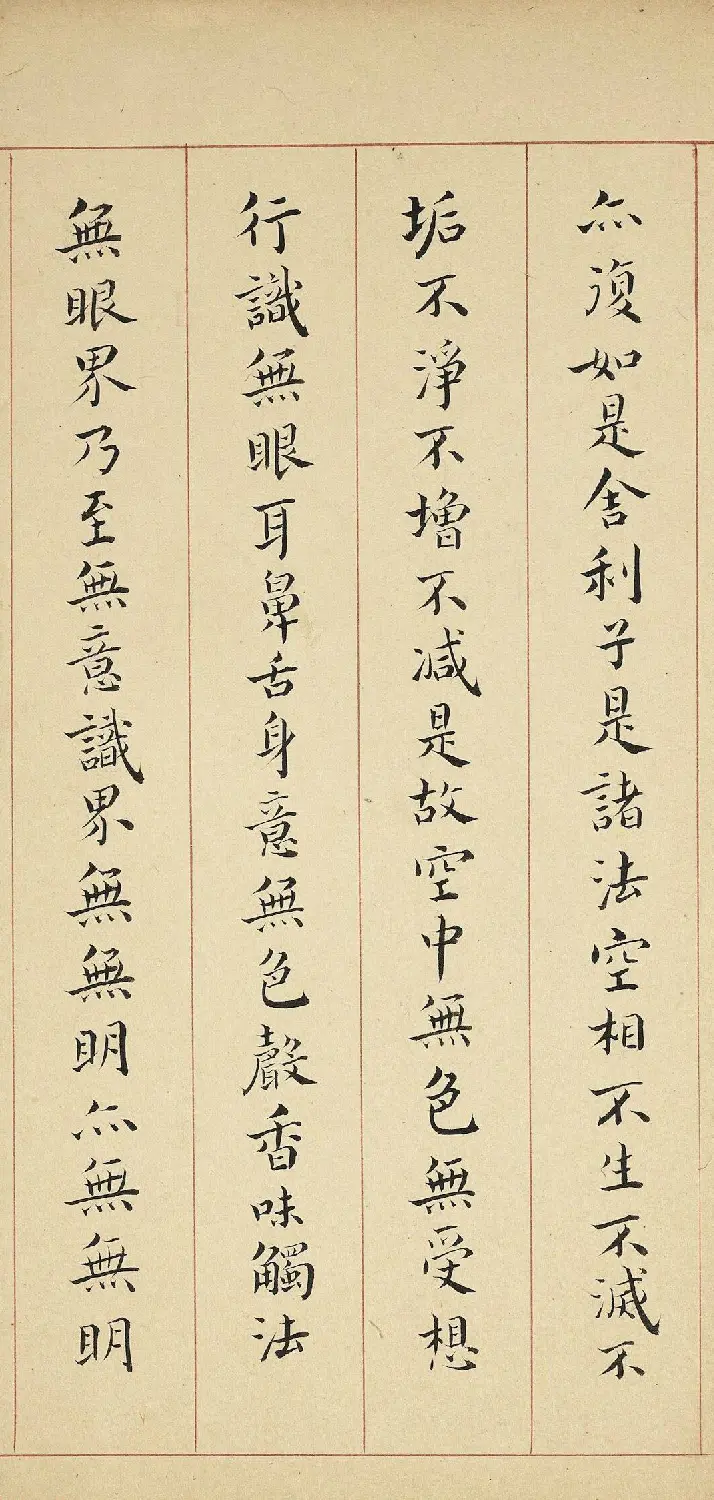 亦復如是舍利子是諸法空相不生不滅不
垢不淨不增不減是故空中無色無受想
行識無眼耳鼻舌身意無色聲香味觸法
無眼界乃至無意識界無無明亦無無明